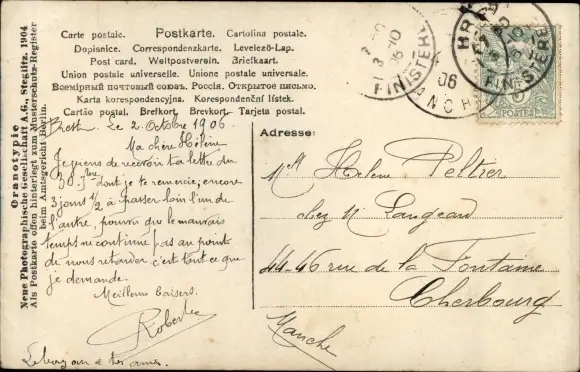 Carte postale. Postkarte. Cartolina postale.
Dopisnice. Correspondenzkarte. Levelező-Lap.
Post card. Weltpostverein. Briefkaart.
Union postale universelle. Unione postale universale.
Всемірный почтовый союз. Россія. Открытое письмо.
Karta korespondencyjna. Korespondenční lístek.
Cartão postal. Brefkort. Brevkort. Tarjeta postal.
Oranotypie
Neue Photographische Gesellschaft A.G., Steglitz. 1904
Als Postkarte offen hinterlegt zum Musterschutz-Register
beim Amtsgericht Berlin.
Brest le 2 Octobre 1906
Ma chère Hélène
Je viens de recevoir ta lettre du
30 7bre dont je te remercie, encore
3 jours 1/2 à passer loin l'un de
l'autre, pourvu que le mauvais
temps ne continue pas au point
de nous retarder c'est tout ce que
je demande.
Meilleurs baisers.
Robert
Adresse:
Mlle Hélène Peltier
chez M Langeard
44-46 rue de la Fontaine
Cherbourg
Manche
FINISTERE
06
BREST
FINISTERE
POSTES